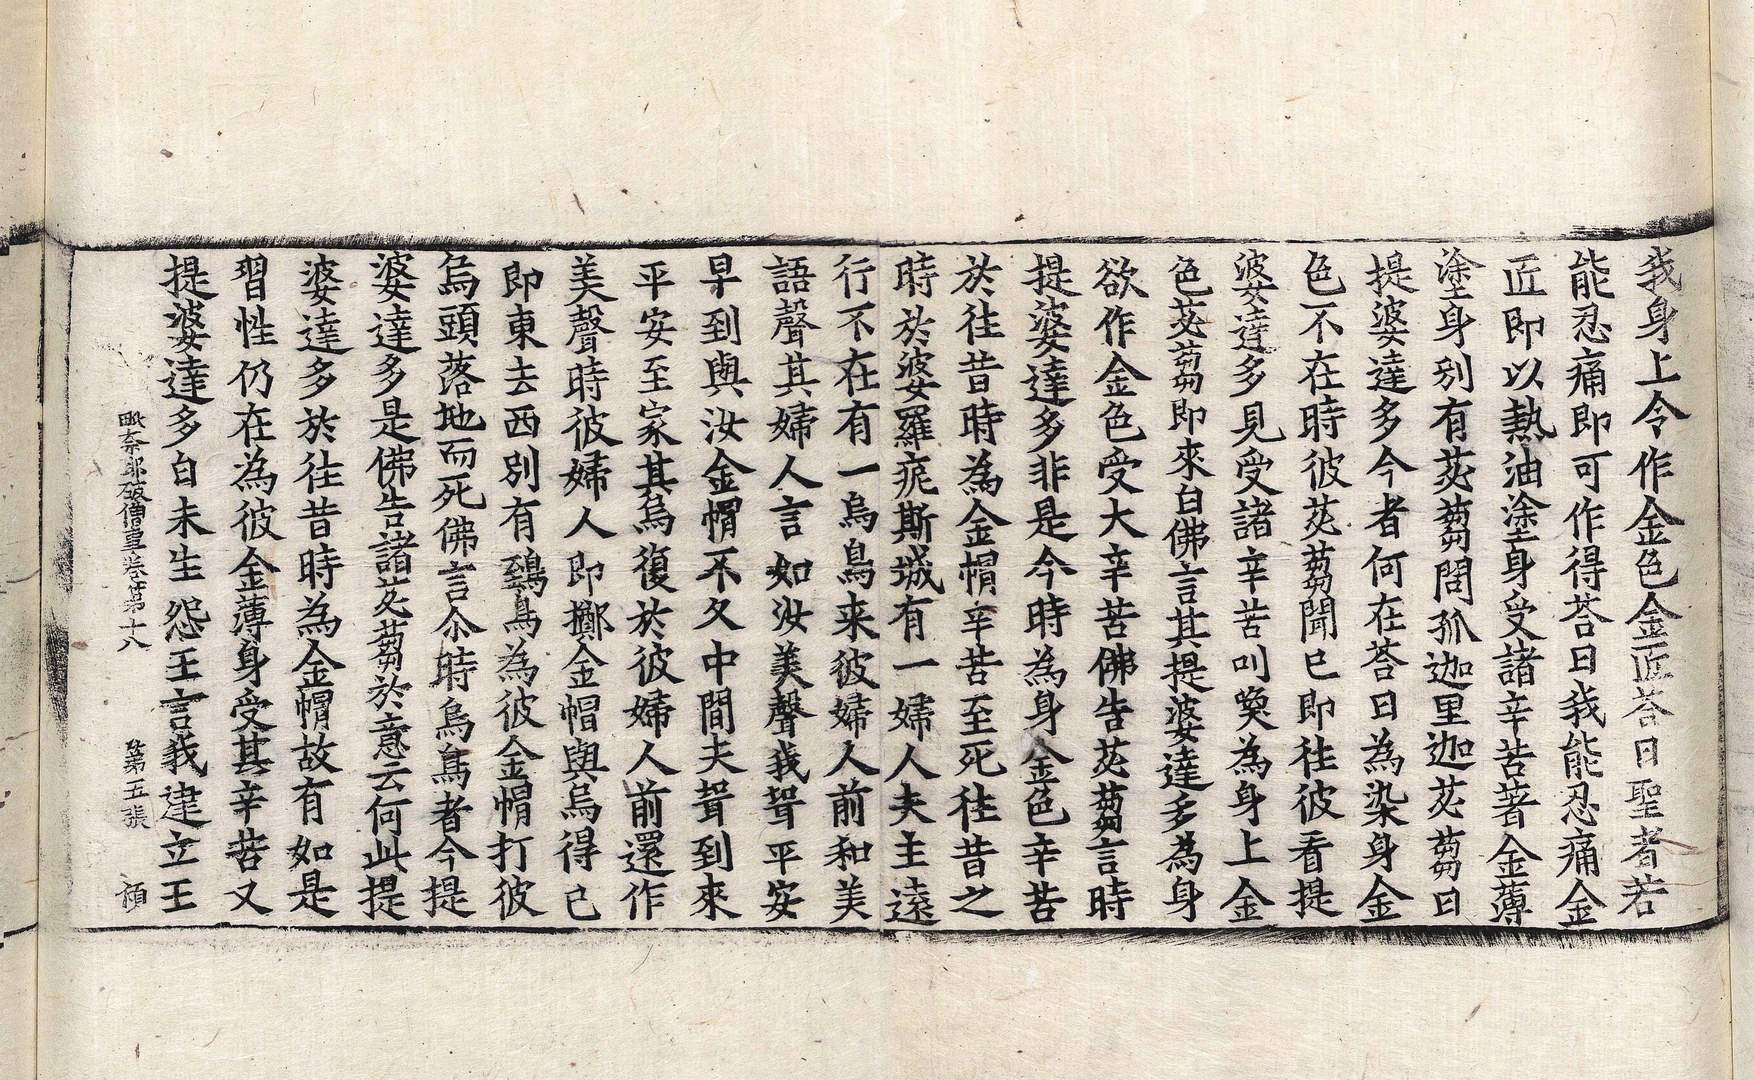 我身上令作金色金匠荅曰聖者若
能忍痛即可作得荅曰我能忍痛金
匠即以熱油塗身受諸辛苦著金薄
塗身别有苾蒭問孤迦里迦苾蒭曰
提婆達多今者何在荅曰為染身金
色不在時彼苾蒭聞已即往彼看提
婆達多見受諸辛苦叫喚為身上金
色苾蒭即來白佛言其提婆達多為身
欲作金色受大辛苦佛告苾蒭言時
提婆達多非是今時為身金色辛苦
於往昔時為金帽辛苦至死往昔之
時於婆羅痆斯城有一婦人夫主遠
行不在有一烏鳥来彼婦人前和美
語聲其婦人言如汝美聲我聟平安
早到與汝金帽不久中間夫聟到來
平安至家其烏復於彼婦人前還作
美聲時彼婦人即擲金帽與烏得已
即東去西別有鵄鳥為彼金帽打彼
烏頭落地而死佛言尒時烏鳥者今提
婆達多是佛告諸苾蒭於意云何此提
婆達多於往昔時為金帽故有如是
習性仍在為彼金薄身受其辛苦又
提婆達多白未生怨王言我建立王
毗奈耶破僧事卷第十八　第五張　禎